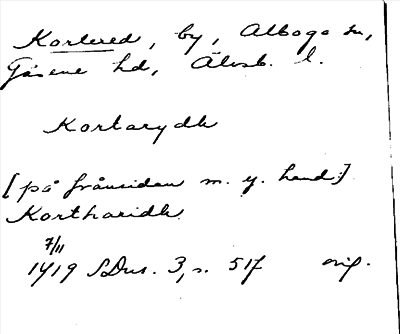 Kortered, by, Alboga sn,
Gäsene hd, Älvsb. l.
Kortarydh
[på frånsidan m. y. hand:]
Kortharidh
7/11
1419 SDns. 3, s. 517 orig.